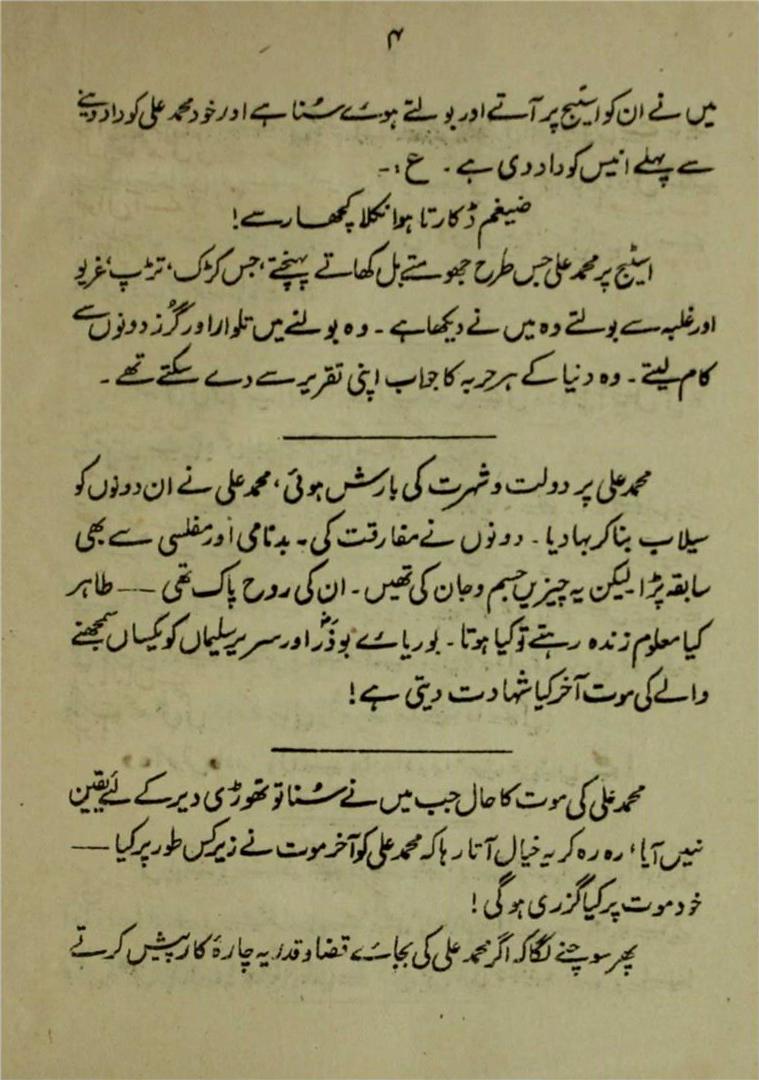 ۴
میں نے ان کو اسٹیج پر آتے اور بولتے ہوئے سُنا ہے اور خود محمد علی کو داد دینے
سے پہلے انیس کو داد دی ہے ۔ ع :۔
ضیغم ڈکارتا ہوا نکلا کچھار سے !
اسٹیج پر محمد علی جس طرح جھومتے بل کھاتے پہنچتے ، جس کڑک ، تڑپ ، غریو
اور غلبہ سے بولتے وہ میں نے دیکھا ہے ۔ وہ بولنے میں تلوار اور گُرز دونوں سے
کام لیتے ۔ وہ دنیا کے ہر حربہ کا جواب اپنی تقریر سے دے سکتے تھے ۔
محمد علی پر دولت و شہرت کی بارش ہوئی ، محمد علی نے ان دونوں کو
سیلاب بنا کر بہا دیا ۔ دونوں نے مفارقت کی ۔ بدنامی اور مفلسی سے بھی
سابقہ پڑا لیکن یہ چیزیں جسم و جان کی تھیں ۔ ان کی روح پاک تھی —— طاہر
کیا معلوم زندہ رہتے تو کیا ہوتا ۔ بوریائے بوذرؓ اور سریرِ سلیماں کو یکساں سمجھنے
والے کی موت آخر کیا شہادت دیتی ہے !
محمد علی کی موت کا حال جب میں نے سُنا تو تھوڑی دیر کے لئے یقین
نہیں آیا ، رہ رہ کر یہ خیال آتا رہا کہ محمد علی کو آخر موت نے زیر کس طور پر کیا ——
خود موت پر کیا گزری ہوگی !
پھر سوچنے لگا کہ اگر محمد علی کی بجائے قضا و قدر یہ چارۂ کار پیش کرتے